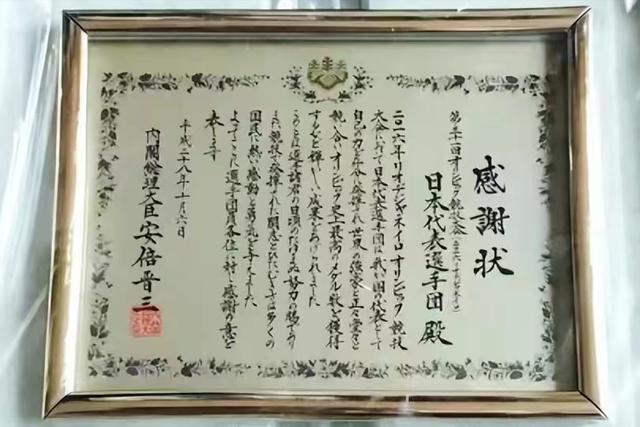 感謝状
第三十一回オリンピック競技大会
日本代表選手団 殿
二〇一六年リオデジャネイロオリンピック競技
大会において日本代表選手団は我が国の代表として
自己の力を十分に発揮され世界の強豪と正々堂々と
競い合いオリンピック史上最高のメダル数を獲得
するなど輝かしい成果をあげられました
このことは選手諸君の日頃のたゆまぬ努力の賜であり
また競技で発揮された闘志とひたむきさは多くの
国民に熱い感動と勇気を与えました
よってここに選手団員各位に対し感謝の意を
表します
平成二十八年十月六日
内閣総理大臣 安倍晋三